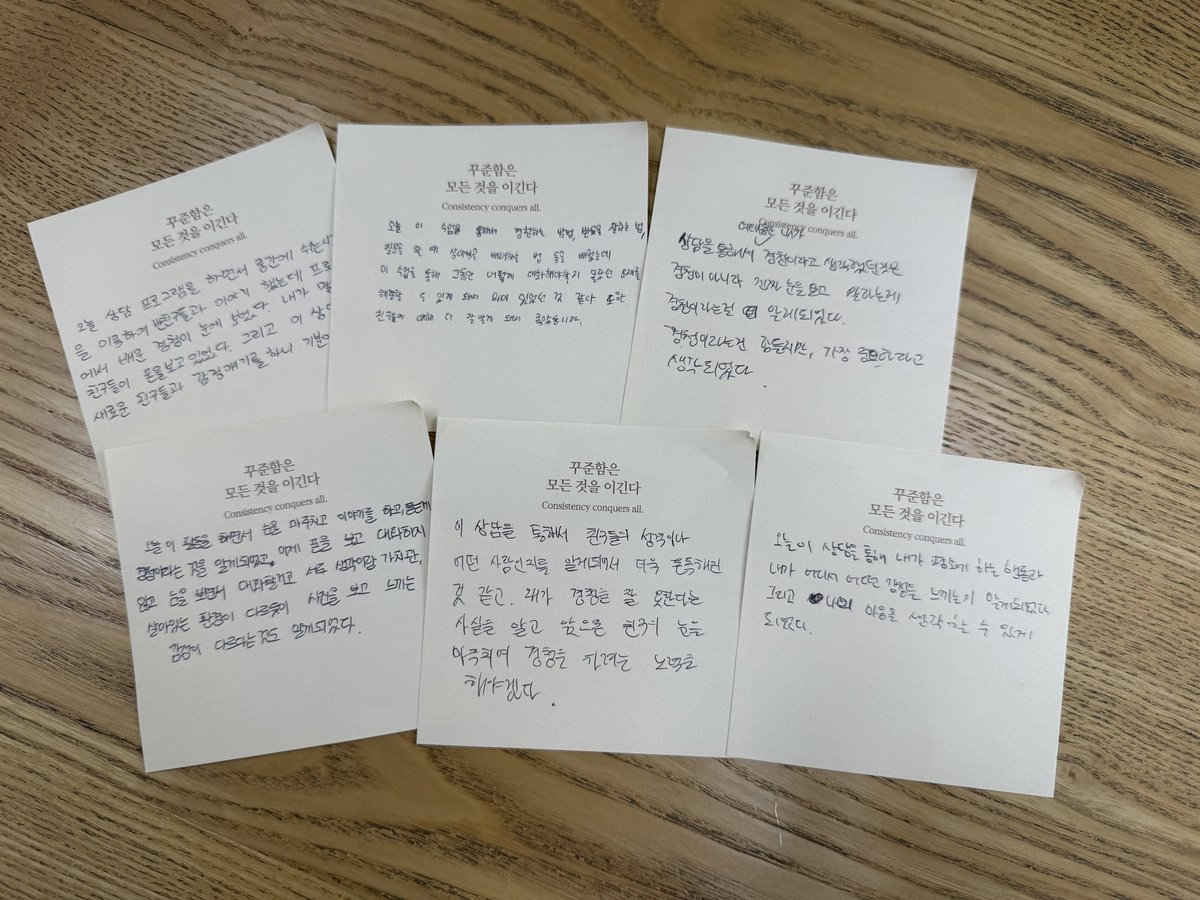 꾸준함은
모든 것을 이긴다
Consistency conquers all.
오늘 상담 프로그램을 하면서 중간에 쉬는시
을 이용하여 반친구들과 이야기 했는데 프로
에서 배운 경청이 눈에 보였다. 내가 말
친구들이 폰을보고 있었다. 그리고 이 상담
새로운 친구들과 감정얘기를 하니 기분이
꾸준함은
모든 것을 이긴다
Consistency conquers all.
오늘 이 수업을 통해서 경청하는 방법, 반응을 잘하는 법,
질문을 할 때 상대방을 배려하는 법 등을 배웠는데
이 수업을 통해 그동안 어떻게 대화해야할지 몰랐던 문제를
해결할 수 있게 돼서 의미 있었던 것 같다 또한
친구들에 대해 더 잘알게 돼서 좋았습니다.
꾸준함은
모든 것을 이긴다
Consistency conquers all.
여태동안 내가
상담을 통해서 경청이라고 생각했던것은
경청이 아니라 진짜 눈을 보고 말하는게
경청이라는걸 알게되었다.
경청이라는건 힘들지만, 가장 중요하다고
생각되었다.
꾸준함은
모든 것을 이긴다
Consistency conquers all.
오늘 이 활동을 하면서 눈을 마주치고 이야기를 하고, 듣는게
경청이라는 것을 알게되었고, 이제 폰을 보고 대화하지
않고 눈을 보면서 대화할거고 서로 성격이랑 가치관,
살아왔는 환경이 다르듯이 사진을 보고 느끼는
감정이 다르다는것도 알게되었다.
꾸준함은
모든 것을 이긴다
Consistency conquers all.
이 상담을 통해서 친구들의 성격이나
어떤 사람인지를 알게되어서 더욱 돈독해진
것 같고. 내가 경청을 잘 못한다는
사실을 알고 앞으론 친구의 눈을
마주치며 경청을 하려는 노력을
해야겠다.
꾸준함은
모든 것을 이긴다
Consistency conquers all.
오늘이 상담을 통해 내가 평소에 하는 행동과
내가 어디서 어떤 감정을 느끼는지 알게되었다
그리고 나의 마음을 생각할 수 있게
되었다.